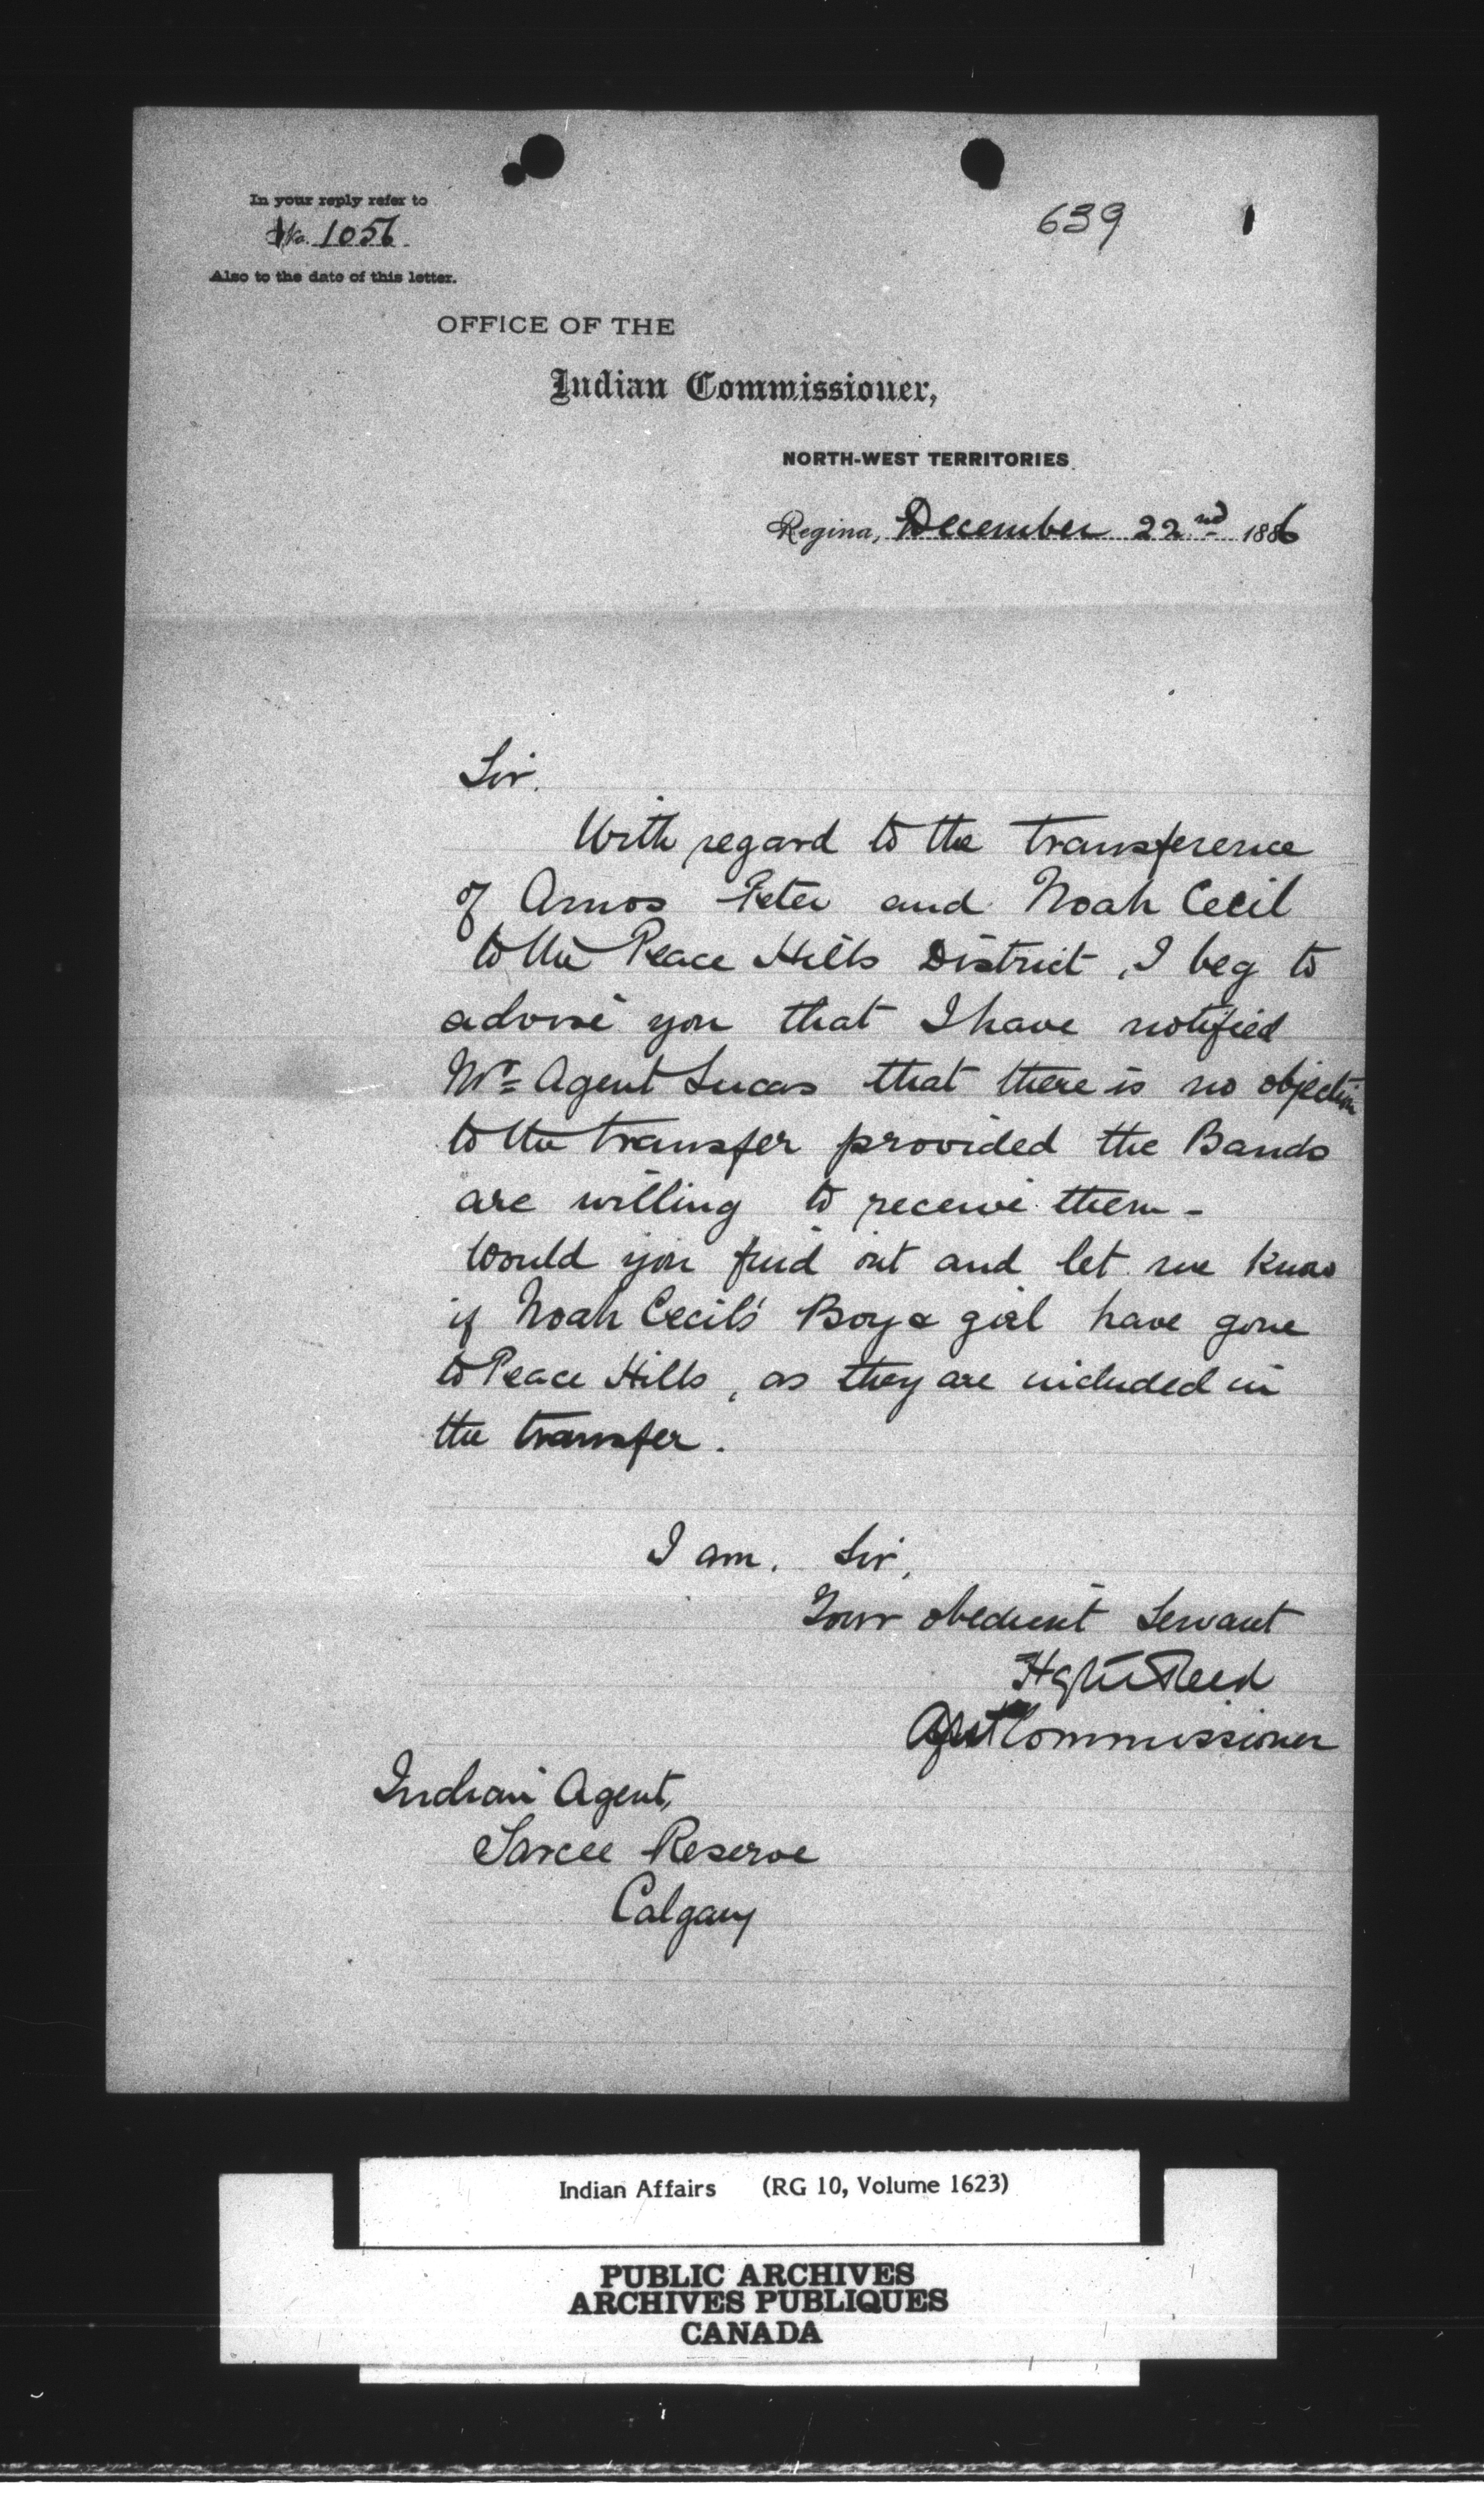 In your reply refer to
No. 1056
Also to the date of this letter.
639
1
OFFICE OF THE
Indian Commissioner,
NORTH-WEST TERRITORIES
Regina, December 22nd 1886
Sir.
With regard to the transference
of Amos Peter and Noah Cecil
to the Peace Hills District, I beg to
advise you that I have notified
Mr Agent Lucas that there is no objection
to the transfer provided the Bands
are willing to receive them -
Would you find out and let me know
if Noah Cecil's Boy & girl have gone
to Peace Hills, as they are included in
the transfer.
I am. Sir,
Your obedient Servant
Hayter Reed
Asst Commissioner
Indian Agent,
Sarcee Reserve
Calgary
Indian Affairs (RG 10, Volume 1623)
PUBLIC ARCHIVES
ARCHIVES PUBLIQUES
CANADA